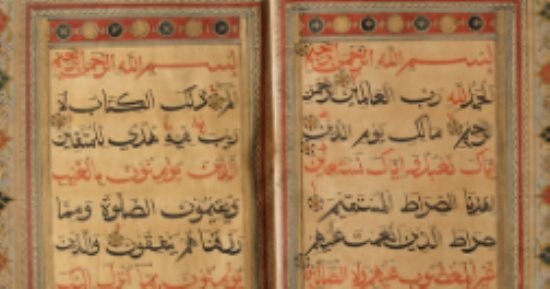 بسم الله الرحمن الرحيم
الحمد لله رب العالمين الرحمن
الرحيم مالك يوم الدين
اياك نعبد و اياك نستعين
اهدنا الصراط المستقيم
صراط الذين انعمت عليهم
غير المغضوب عليهم ولا الضالين
بسم الله الرحمن الرحيم
الم ذلك الكتاب لا
ريب فيه هدى للمتقين
الذين يؤمنون بالغيب
ويقيمون الصلوة ومما
رزقناهم ينفقون والذين
يؤمنون بما انزل اليك